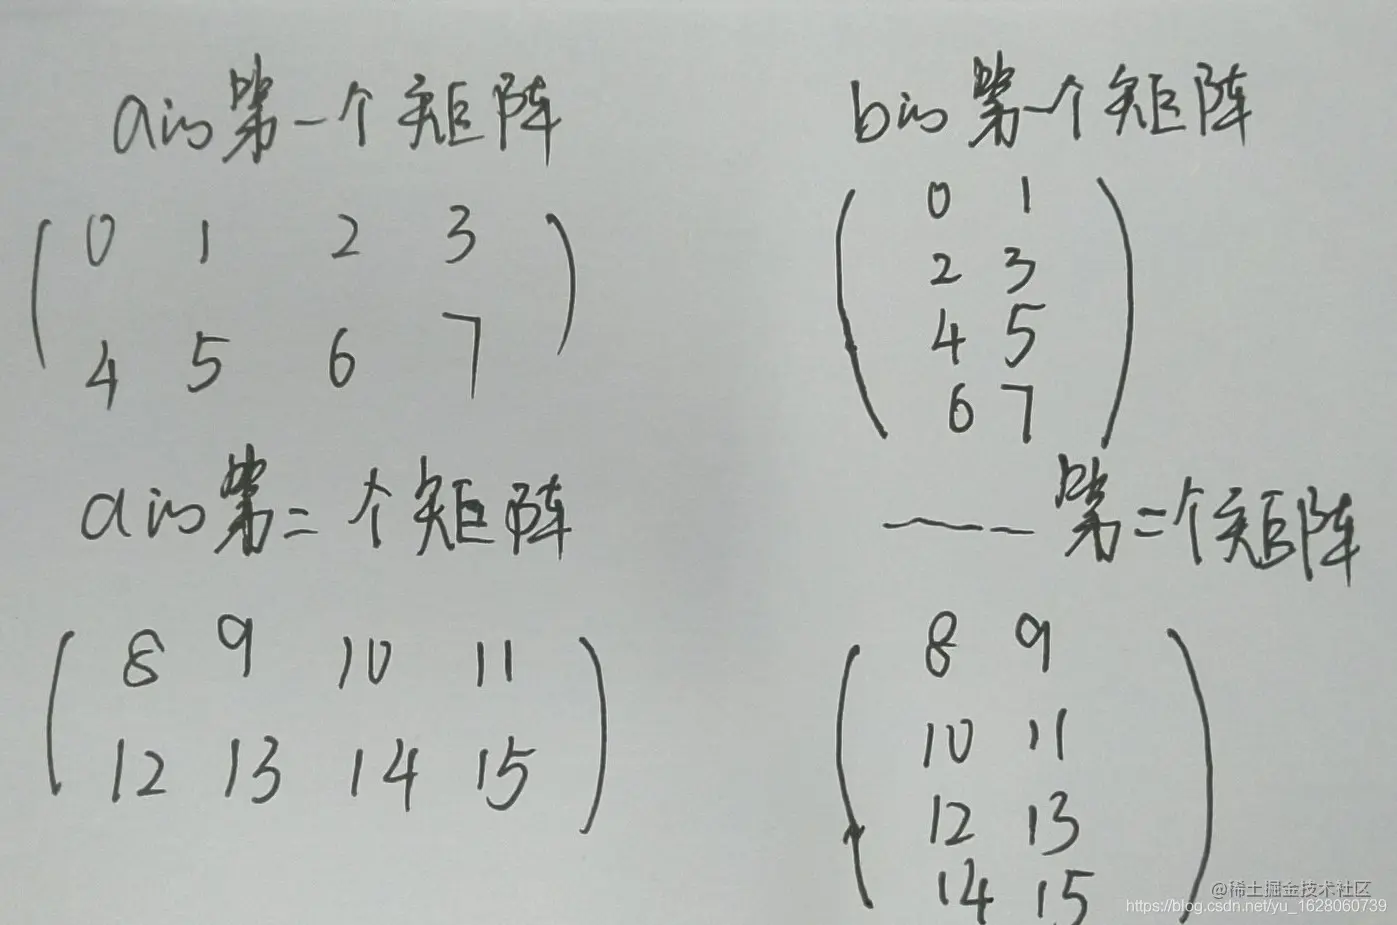 a的第一个矩阵
0 1 2 3
4 5 6 7
a的第二个矩阵
8 9 10 11
12 13 14 15
b的第一个矩阵
0 1
2 3
4 5
6 7
第二个矩阵
8 9
10 11
12 13
14 15
@稀土掘金技术社区
https://blog.csdn.net/yu_1628060739